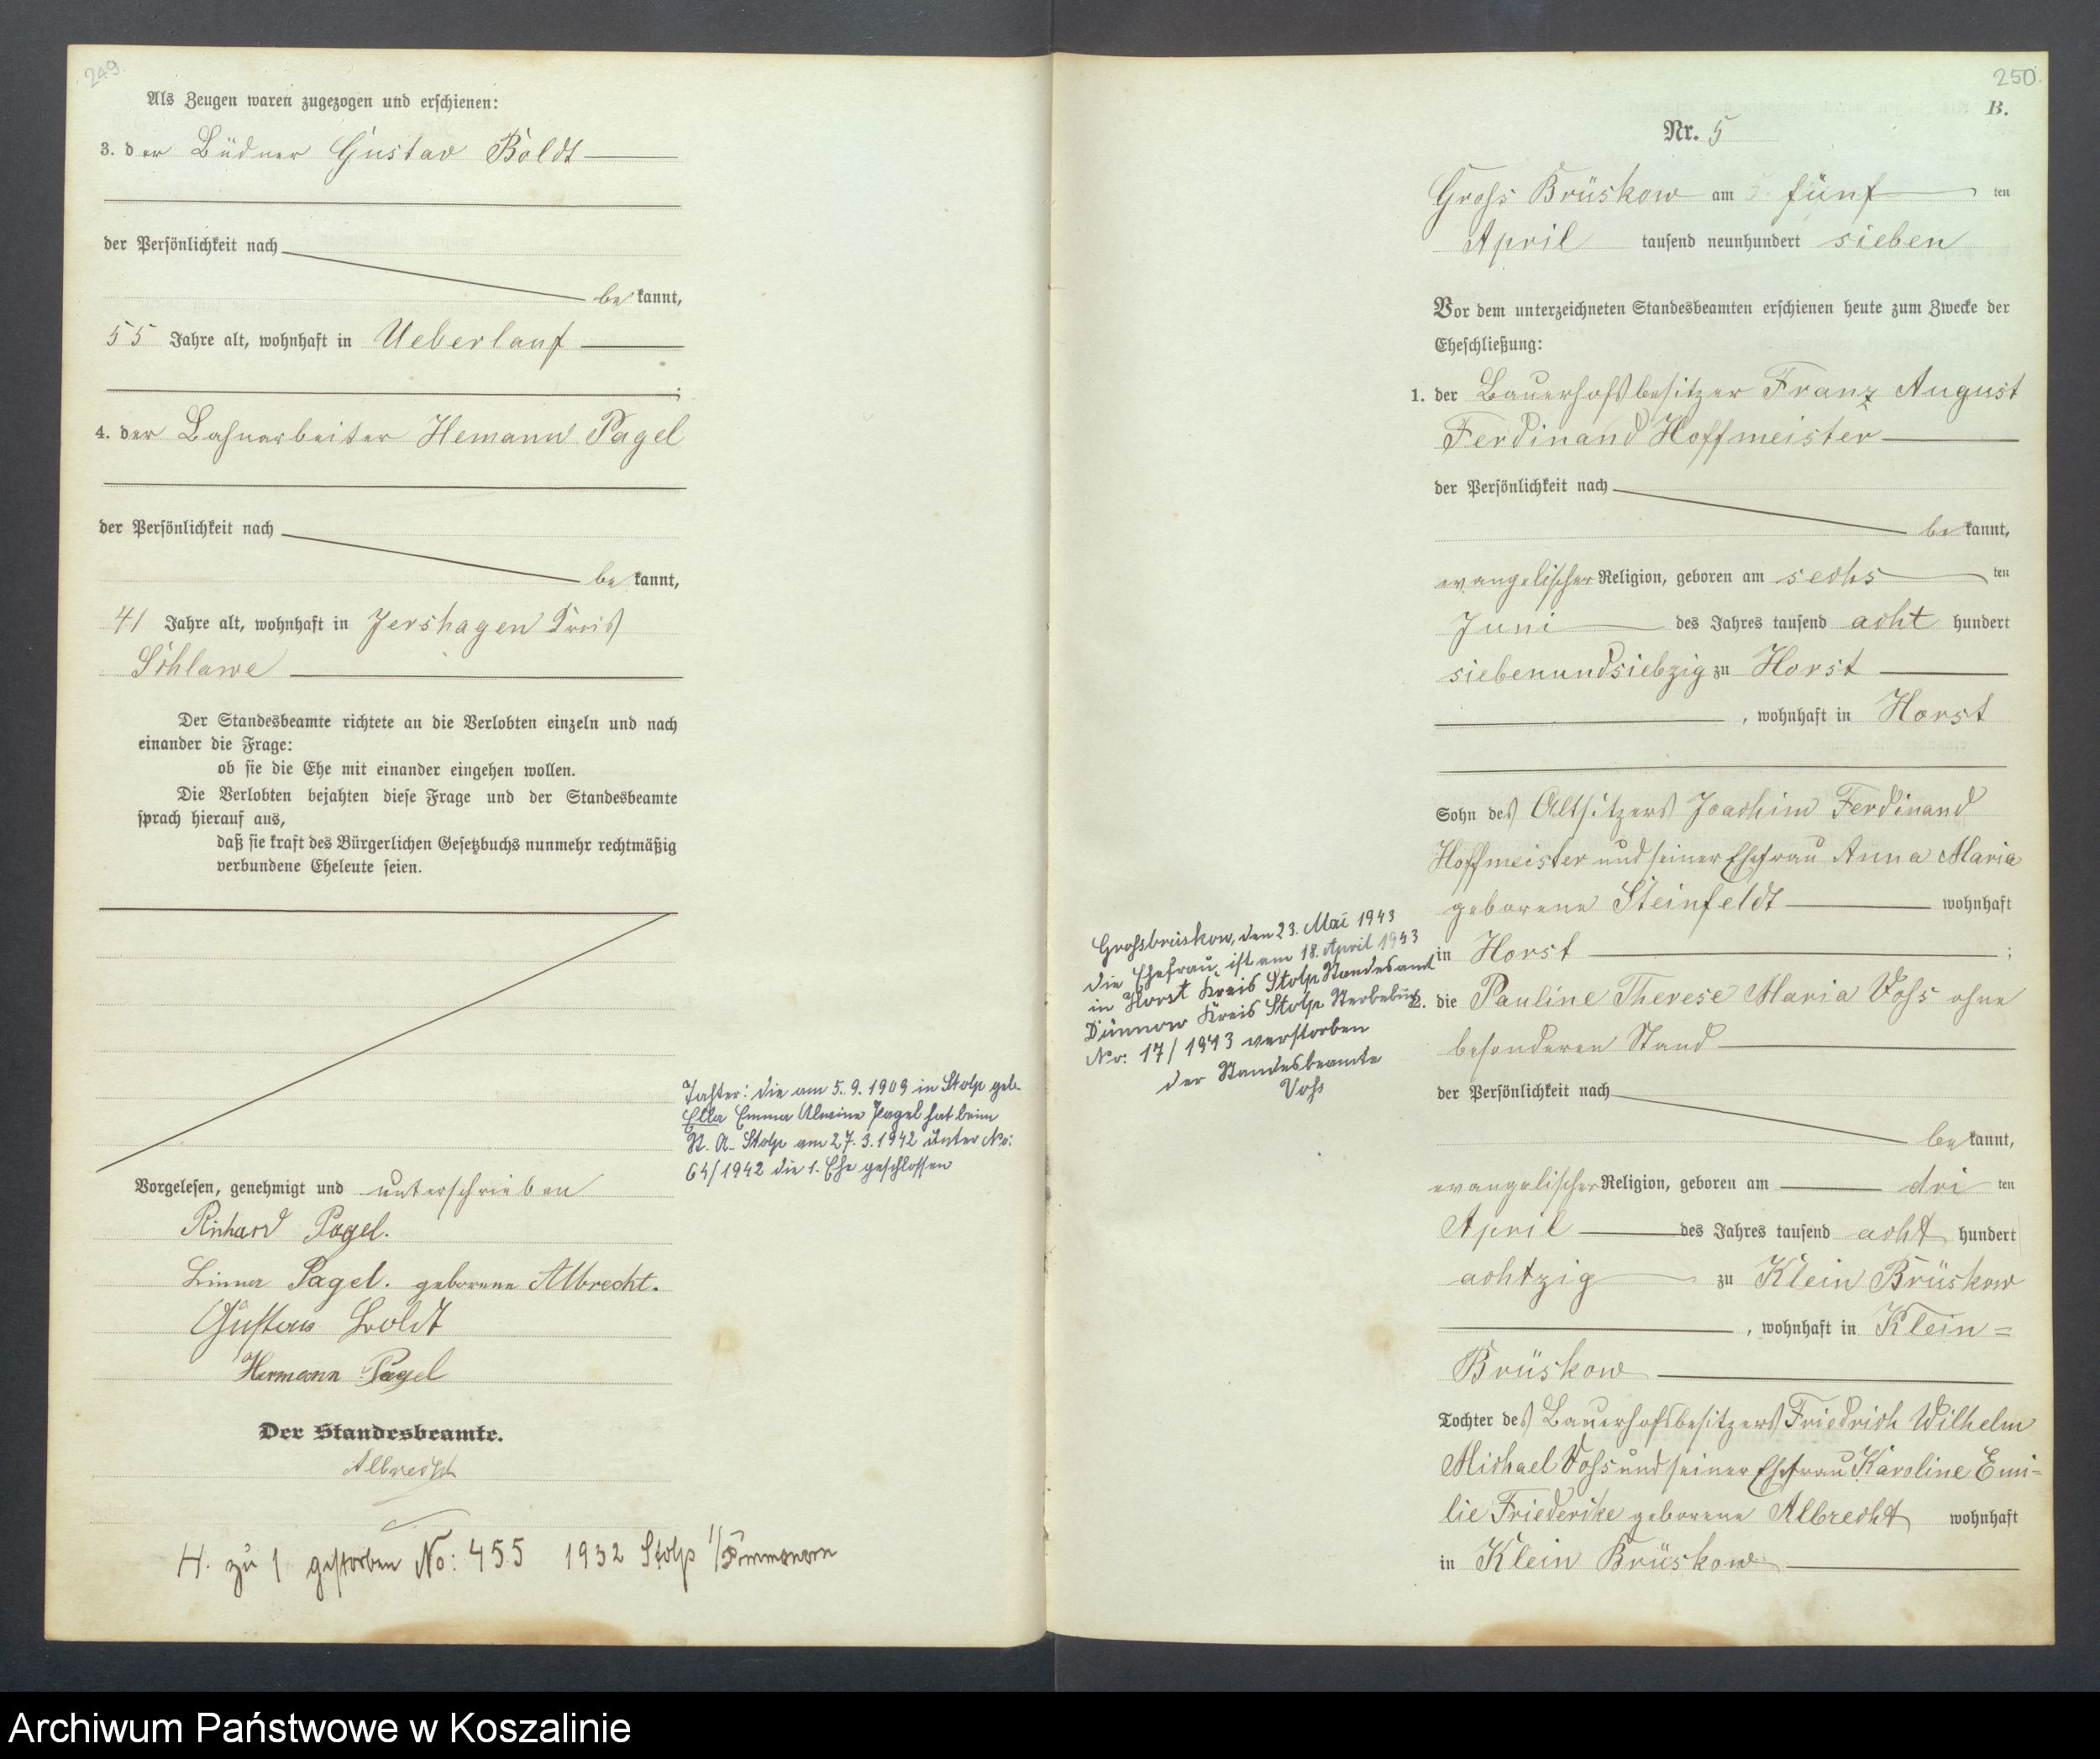 249.
Als Zeugen waren zugezogen und erschienen:
3. der Büdner Gustav Boldt
der Persönlichkeit nach
be kannt,
55 Jahre alt, wohnhaft in Ueberlauf
;
4. der Bahnarbeiter Hemann Pagel
der Persönlichkeit nach
be kannt,
41 Jahre alt, wohnhaft in Jershagen Kreis
Schlawe
Der Standesbeamte richtete an die Verlobten einzeln und nach
einander die Frage:
ob sie die Ehe mit einander eingehen wollen.
Die Verlobten bejahten diese Frage und der Standesbeamte
sprach hierauf aus,
daß sie kraft des Bürgerlichen Gesetzbuchs nunmehr rechtmäßig
verbundene Eheleute seien.
Tochter: die am 5.9.1909 in Stolp geb.
Ella Emma Alwine Pagel hat beim
St. A. Stolp am 27.3.1942 unter No:
64/1942 die 1. Ehe geschlossen
Vorgelesen, genehmigt und unterschrieben
Richard Pagel.
Pagel. geborene Albrecht.
Gustav Boldt
Hermann Pagel
Der Standesbeamte.
Albrecht
H. zu 1 gestorben No: 455 1932 Stolp
250.
B.
Nr. 5
Gross Brüskow am fünf ten
April tausend neunhundert sieben
Vor dem unterzeichneten Standesbeamten erschienen heute zum Zwecke der
Eheschließung:
1. der Bauerhofsbesitzer Franz August
Ferdinand Hoffmeister
der Persönlichkeit nach
be kannt,
evangelischer Religion, geboren am sechs ten
Juni des Jahres tausend acht hundert
siebenundsiebzig zu Horst
, wohnhaft in Horst
Sohn des Altsitzers Joachim Ferdinand
Hoffmeister und seiner Ehefrau Anna Maria
geborene Steinfeldt wohnhaft
in Horst ;
Grossbrüskow, den 23. Mai 1943
die Ehefrau ist am 18. April 1943
in Horst Kreis Stolp Standesamt
Dünnow Kreis Stolp Sterbebuch
No: 17/1943 verstorben
der Standesbeamte
Voss
2. die Pauline Therese Maria Voss ohne
besonderen Stand
der Persönlichkeit nach
be kannt,
evangelischer Religion, geboren am dri ten
April des Jahres tausend acht hundert
achtzig zu Klein Brüskow
, wohnhaft in Klein=
Brüskow
Tochter des Bauerhofsbesitzers Friedrich Wilhelm
Michael Voss und seiner Ehefrau Karoline Emi=
lie Friederike geborene Albrecht wohnhaft
in Klein Brüskow
Archiwum Państwowe w Koszalinie